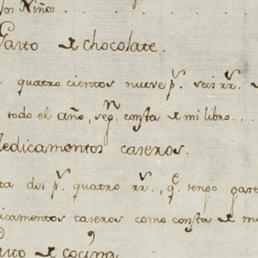 los Niños
Gasto de chocolate.
quatro cientos nueve p.s seis rr.s
todo el año, seg.n consta de mi libro...
Medicamentos caseros.
ta dos p.s quatro rr.s, q.e tengo gast
dicamentos caseros como consta de m
Gasto de cocina